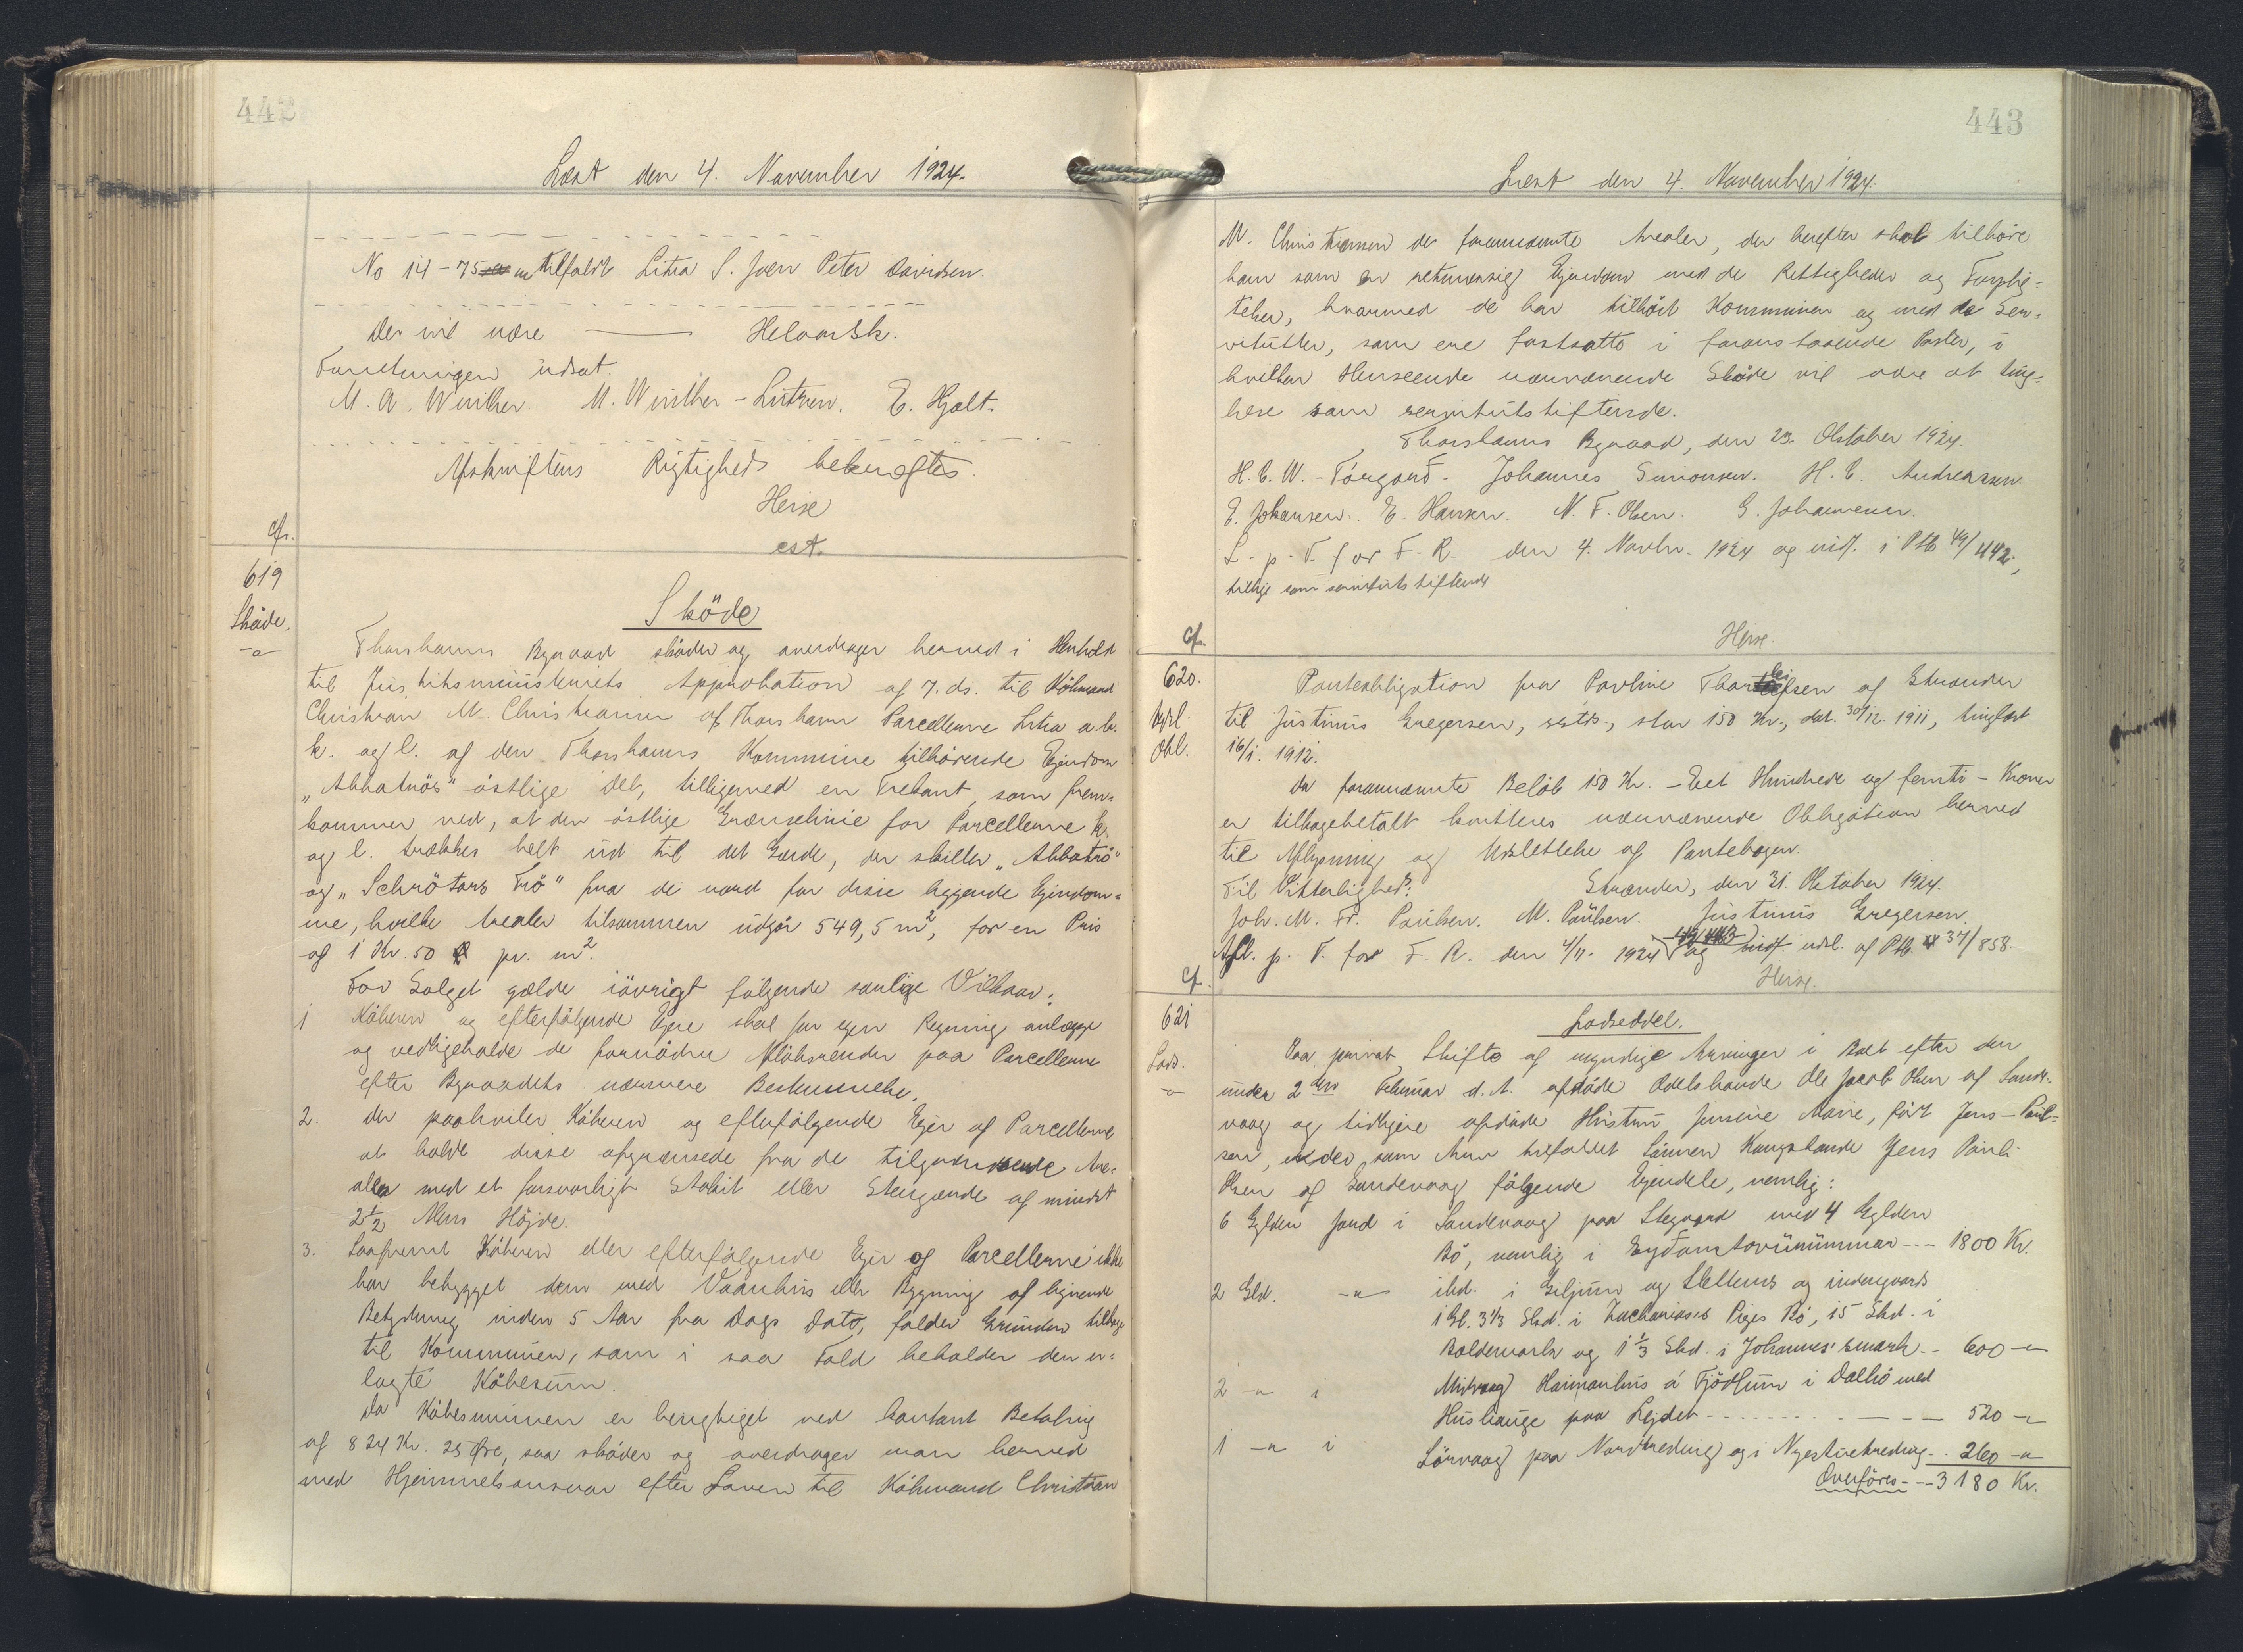 442
Læst den 4. November 1924.
No 14-75 m tilfaldt Litra S. Joen Peter Davidsen.
Der vil være — HelaarSk.
Forretningen udsat.
M. A. Winther. M. Winther-Lützen. E. Hjalt.
Afskriftens Rigtighed bekræftes.
Heise
cst.
Cfr.
619
Sköde.
Sköde
Thorshavns Byraad sköder og overdrager herved i Henhold
til Justitsministeriets Approbation af 7. ds. til Köbmand
Christian M. Christiansen af Thorshavn Parcellerne Litra a. b.
k. og l. af den Thorshavns Kommune tilhörende Ejendom
„Abbatrös" östlige Del, tilligemed en Trekant, som frem-
kommer ved, at den östlige Grænselinie for Parcellerne k.
og l. trækkes helt ud til det Gærde, der skiller „Abbatrö"
og „Schrötars Trö" fra de nord for disse liggende Ejendom-
me, hvilke Arealer tilsammen udgör 549,5 m², for en Pris
af 1 Kr. 50 pr. m².
For Salget gælde iövrigt fölgende særlige Vilkaar:
1 Köberen og efterfölgende Ejere skal for egen Regning anlægge
og vedligeholde de fornödne Afløbsrender paa Parcellerne
efter Byraadets nærmere Bestemmelse.
2. Det paahviler Köberen og efterfölgende Ejer af Parcellerne
at holde disse afgrænsede fra de tilgrænsende Are-
aler med et forsvarligt Stakit eller Stengærde af mindst
2½ Alens Höjde.
3. Saafremt Köberen eller efterfölgende Ejer af Parcellerne ikke
har bebygget dem med Vaanhus eller Bygning af lignende
Betydning inden 5 Aar fra Dags Dato, falder Grunden tilbage
til Kommunen, som i saa Fald beholder den er-
lagte Köbesum.
Da Köbesummen er berigtiget ved kontant Betaling
af 824 Kr. 25 Øre, saa sköder og overdrager man herved
med Hjemmelsansvar efter Loven til Köbmand Christian
443
Læst den 4. November 1924.
M. Christiansen de forannævnte Arealer, der herefter skal tilhöre
ham som en retmæssig Ejendom med de Rettigheder og Forplig-
telser, hvormed de har tilhört Kommunen og med de Ser-
vitutter, som ere fastsatte i foranstaaende Poster, i
hvilken Henseende nærværende Sköde vil være at ting-
læse som servitutstiftende.
Thorshavns Byraad, den 23. Oktober 1924.
H. C. W. Tórgarð. Johannes Simonsen. H. C. Andreassen.
E. Johansen. E. Hansen. N. F. Olsen. G. Johannesen.
L. p. T. for F. R. den 4. Novbr. 1924 og indf. i Ptb 49/442,
tillige som servitutstiftende
Heise.
Cfr.
620.
Udsl.
Obl.
Panteobligation fra Pavline Thorleifsen af Strænder
til Justinus Gregersen, ssteds., stor 150 Kr., dat. 30/12. 1911, tinglæst
16/1. 1912.
Da forannævnte Belöb 150 Kr. - Eet Hundrede og femti - Kroner
er tilbagebetalt kvitteres nærværende Obligation herved
til Aflysning og Udslettelse af Pantebogen.
Til Vitterlighed: Strænder, den 31. Oktober 1924.
Joh. M. Fr. Poulsen. M. Poulsen. Justinus Gregersen.
Afl. p. T. for F. R. den 4/11. 1924 og udsl. af Ptb 37/858.
Heise.
Cf.
621
Lods.
Lodseddel.
Paa privat Skifte af myndige Arvinger i Boet efter den
under 2den Februar d. A. afdöde Odelsbonde Ole Jacob Olsen af Sande-
vaag og tidligere afdöde Hustru Jensine Marie, född Jens-Poul-
sen, er der som Arv tilfaldet Sönnen Kongsbonde Jens Pauli
Olsen af Sandevaag fölgende Ejendele, nemlig:
6 Gylden Jord i Sandevaag paa Stegaard med 4 Gylden
Bö, nemlig i Eydamtovunummar --- 1800 Kr.
2 Gld. -"- ibd. i Giljum og Slettens og indengaards
1 Gl. 3 1/3 Skd. i Zachariasis Piges Bö, 15 Skd. i
Boldemark og 1 1/3 Skd. i Johannes' smark -- 600 -"-
2 -"- i Midvaag Haimanhus á Fjödlum i Dalbö med
Huslauge paa Lejdet ------ 520 -"-
1 -"- i Sörvaag paa Nordtreding og i Nygesturetreding -- 260 -"-
Overföres --- 3180 Kr.